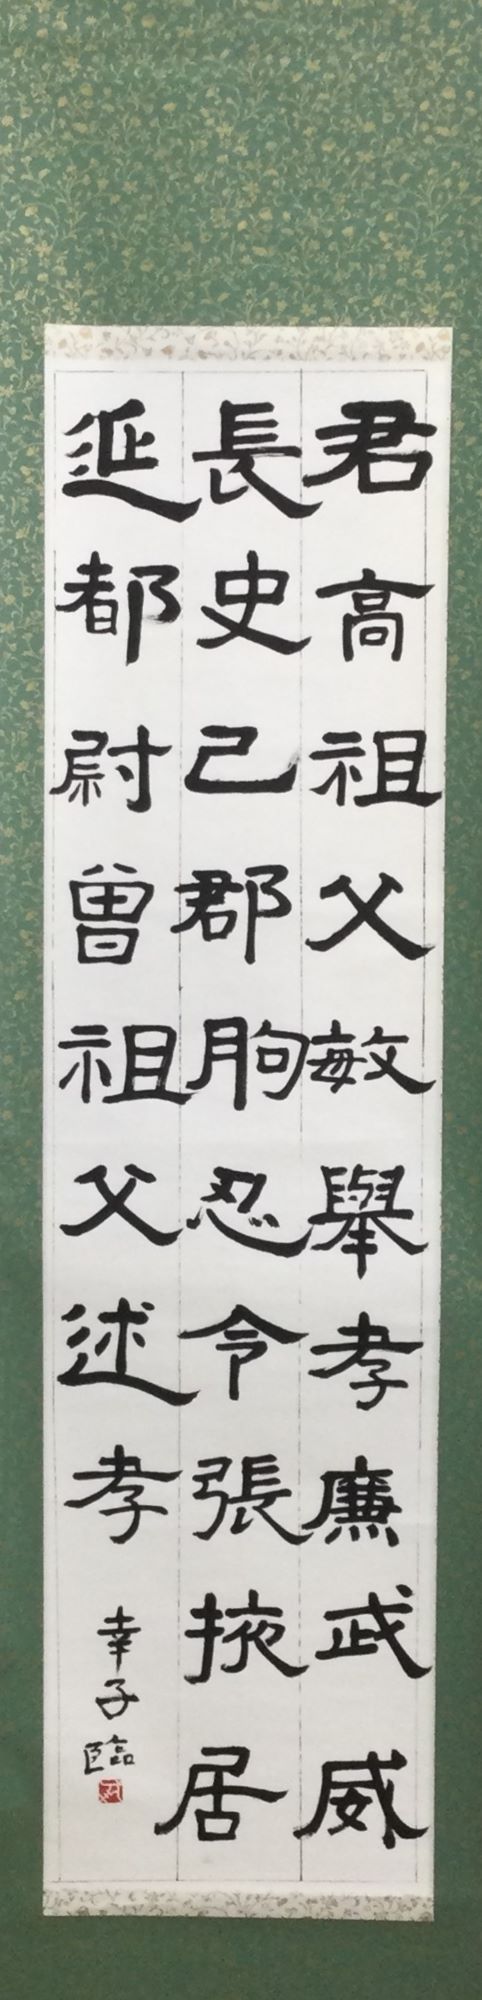 君高祖父敏舉孝廉武威
長史己郡朐忍令張掖居
延都尉曾祖父述孝
幸子臨